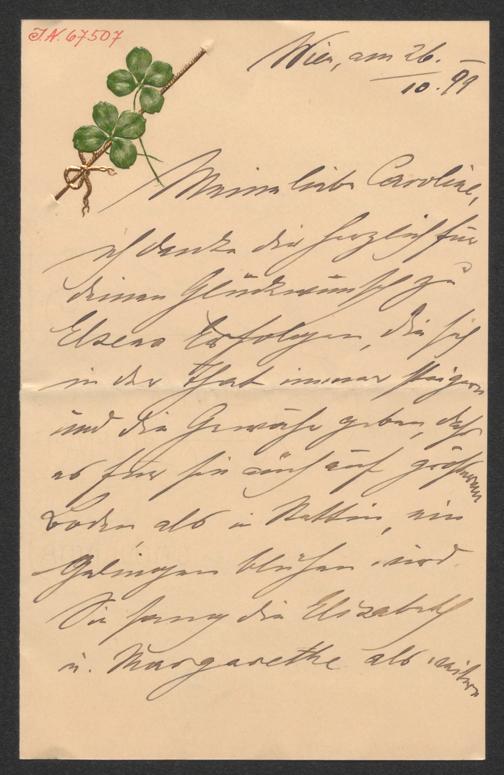 I.N. 67507
Wien, am 26.
10. 99
Meine liebe Caroline,
ich danke dir herzlich für
deinen Glückwunsch zu
Elsens Erfolgen, die sich
in der That immer steigern
und die Gewähr geben, daß
es für sie auch auf größerem
Boden als in Stettin, ein
Gelingen blühen wird.
Sie sang die Elisabeth
u. Margarethe als weitere